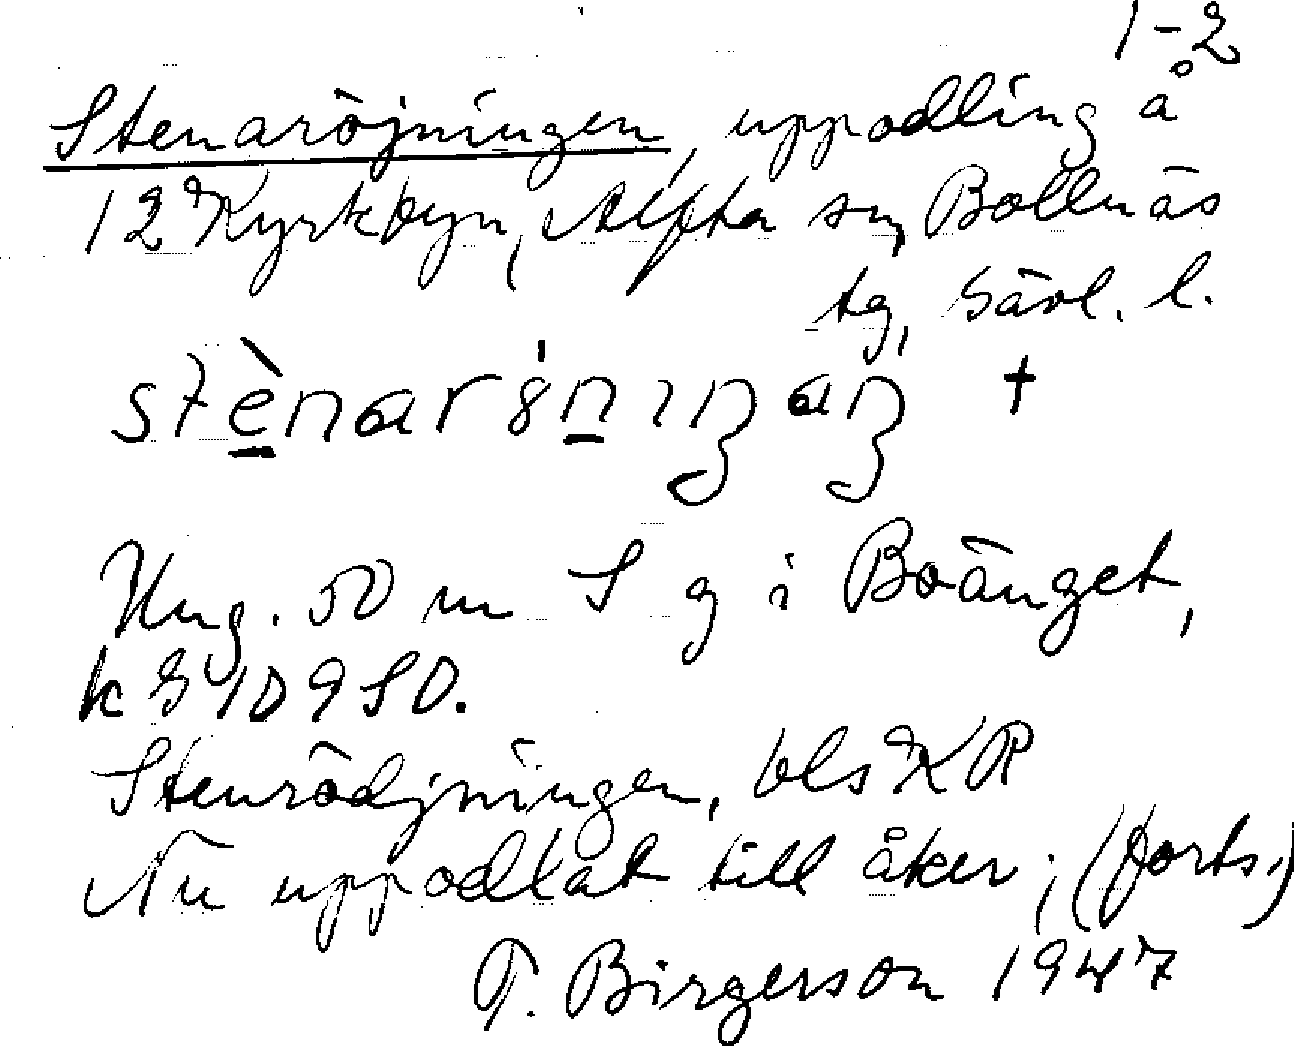 1-2
Stenaröjningen, uppodling å
12 Kyrkbyn, Alfta sn, Bollnäs
tg, Gävl. l.
Ung. 50 m S g i Boänget,
k 8 10 9 S O.
Stenrödjningen, bls KR
Nu uppodlat till åker; (forts.)
T. Birgerson 1947